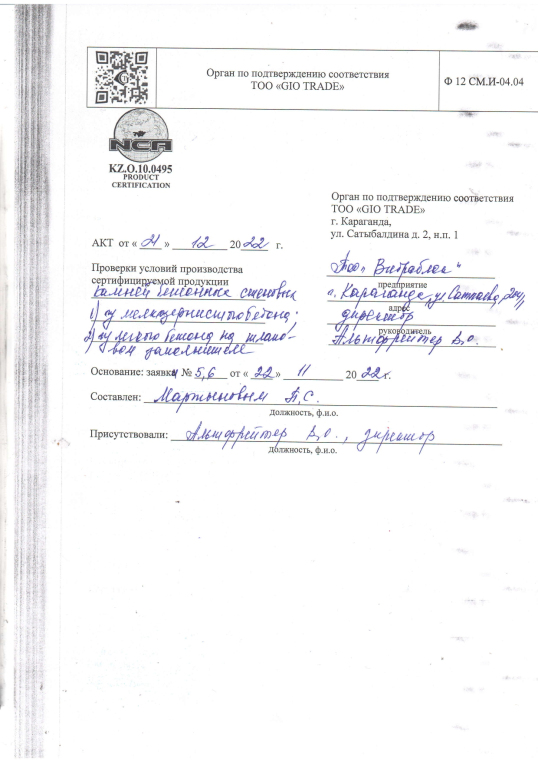 Орган по подтверждению соответствия
ТОО «GIO TRADE»
Ф 12 СМ.И-04.04
NCA
KZ.O.10.0495
PRODUCT
CERTIFICATION
Орган по подтверждению соответствия
ТОО «GIO TRADE»
г. Караганда,
ул. Сатыбалдина д. 2, н.п. 1
АКТ от « 21 » 12 2022 г.
Проверки условий производства
сертифицируемой продукции
камней бетонных стеновых
1) из мелкозернистого бетона;
2) из легкого бетона на шлако-
вом заполнителе
ТОО "Витаблок"
предприятие
г. Караганда, ул Сатпаева,
адрес
директор
руководитель
Альтфрейтер В.О.
Основание: заявки № 5,6 от « 22 » 11 2022г.
Составлен: Мартыновым П.С.
Должность, ф.и.о.
Присутствовали: Альтфрейтер В.О., директор
Должность, ф.и.о.